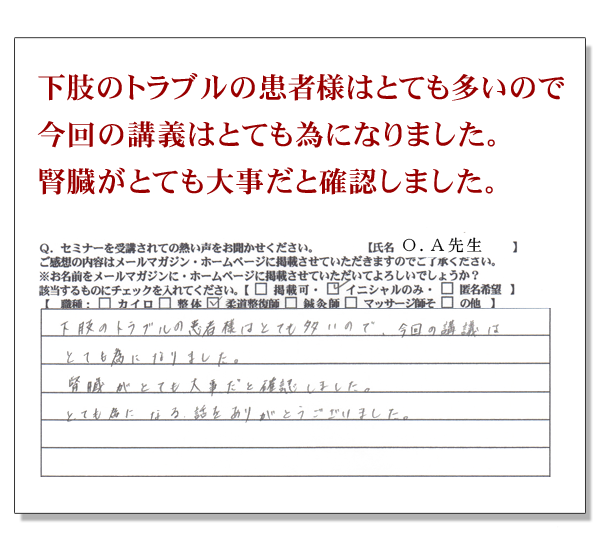 下肢のトラブルの患者様はとても多いので
今回の講義はとても為になりました。
腎臓がとても大事だと確認しました。
Q. セミナーを受講されての熱い声をお聞かせください。 【氏名 O.A先生 】
ご感想の内容はメールマガジン・ホームページに掲載させていただきますのでご了承ください。
※お名前をメールマガジンに・ホームページに掲載させていただいてよろしいでしょうか?
該当するものにチェックを入れてください。【 □ 掲載可・ ☑ イニシャルのみ・ □ 匿名希望 】
【 職種: □ カイロ □ 整体 ☑ 柔道整復師 □ 鍼灸師 □ マッサージ師そ □ の他 】
下肢のトラブルの患者様はとても多いので、今回の講議は
とても為になりました。
腎臓がとても大事だと確認しました。
とても為になる、話をありがとうございました。